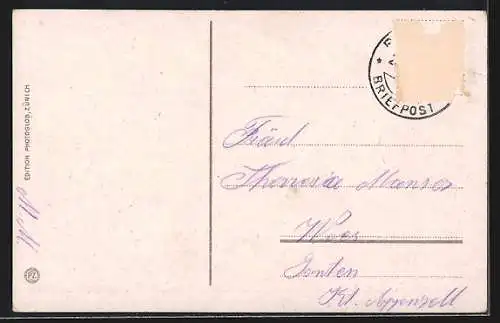 EDITION PHOTOGLOB, ZÜRICH
PZ
M. M.
BRIEFPOST
Fräul
Theresia Manser
Wees
Jonten
Kt. Appenzell